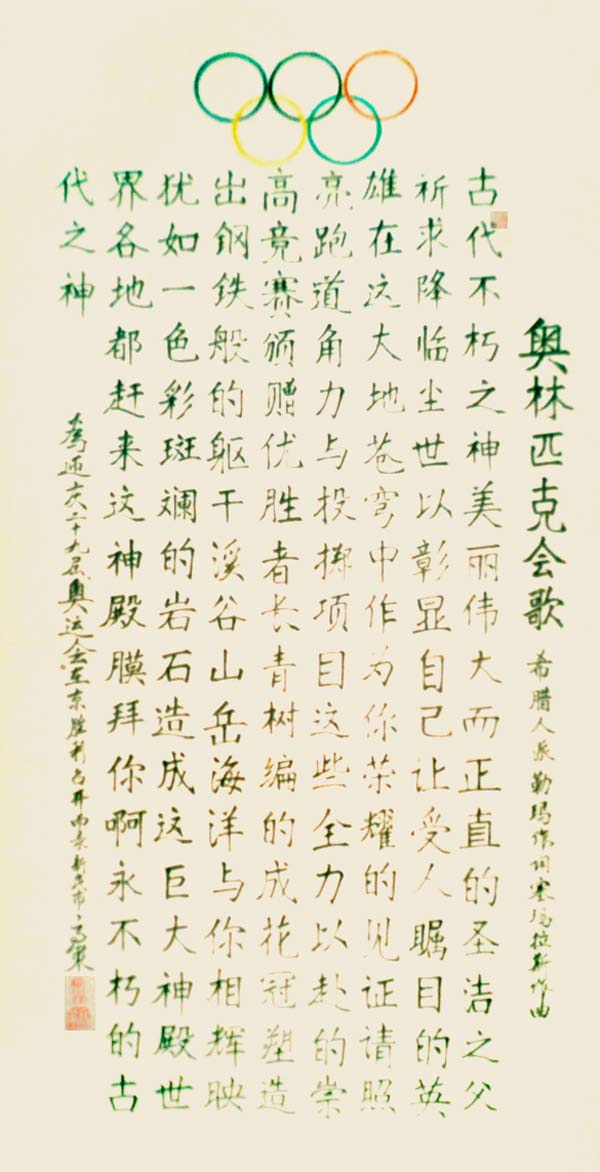 奥林匹克会歌
希腊人派勒玛作词塞玛拉斯作曲
古代不朽之神美丽伟大而正直的圣洁之父
祈求降临尘世以彰显自己让受人瞩目的英
雄在这大地苍穹中作为你荣耀的见证请照
亮跑道角力与投掷项目这些全力以赴的崇
高竟赛颁赠优胜者长青树编的成花冠塑造
出钢铁般的躯干溪谷山岳海洋与你相辉映
犹如一色彩斑斓的岩石造成这巨大神殿世
界各地都赶来这神殿膜拜你啊永不朽的古
代之神
為迎庆二十九届奥运会在京胜利召开